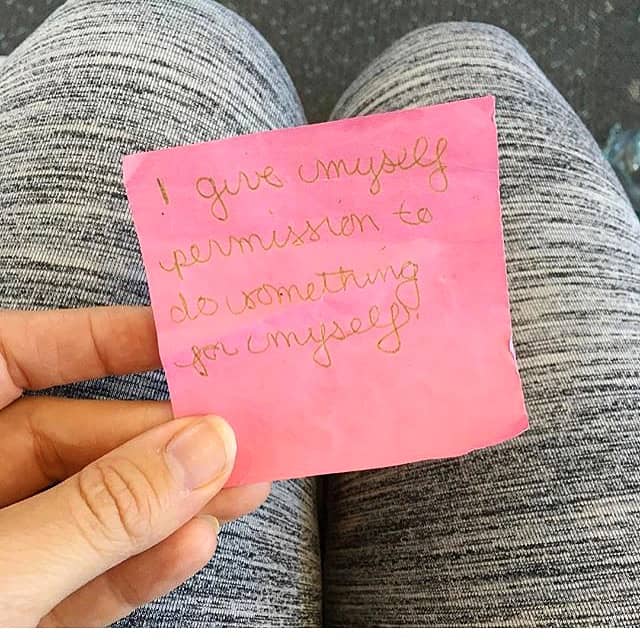 I give myself
permission to
do something
for myself.